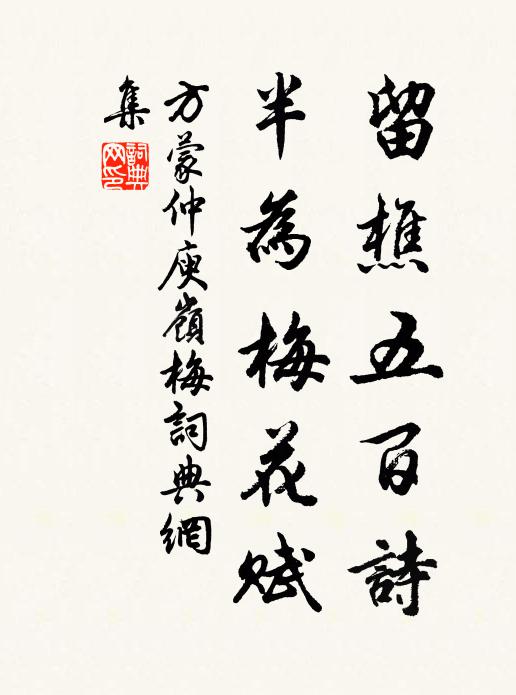 留樵五百詩
半為梅花賦
方蒙仲庾嶺梅詞典網
集
詞典
网印